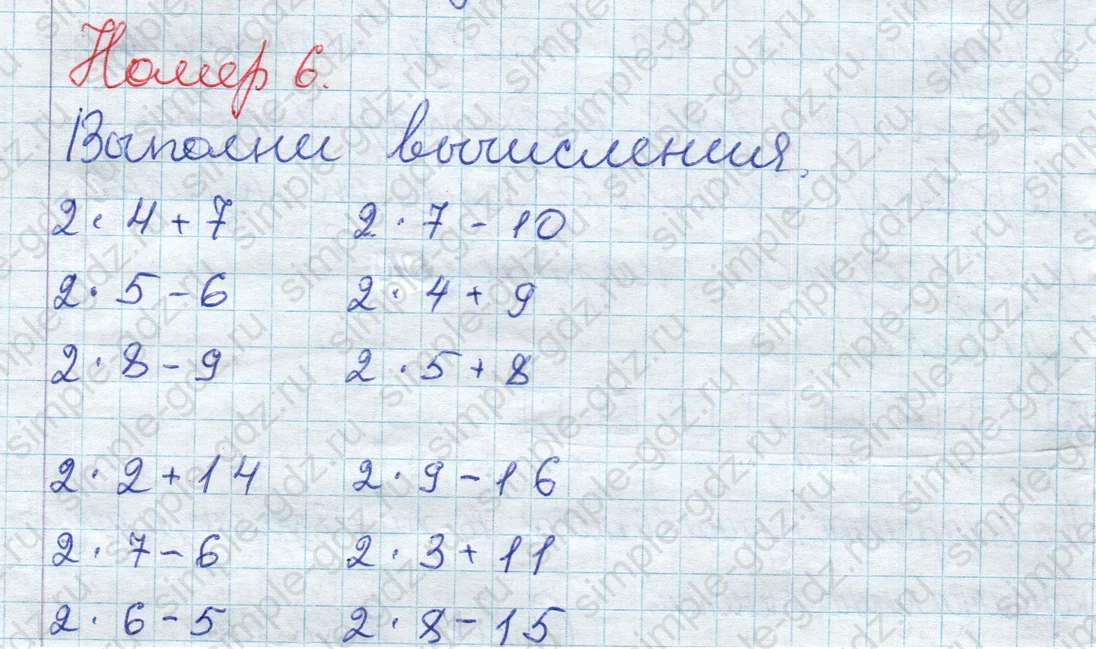 Номер 6.
Выполни вычисления.
2 · 4 + 7 2 · 7 - 10
2 · 5 - 6 2 · 4 + 9
2 · 8 - 9 2 · 5 + 8
2 · 2 + 14 2 · 9 - 16
2 · 7 - 6 2 · 3 + 11
2 · 6 - 5 2 · 8 - 15
simple-gdz.ru